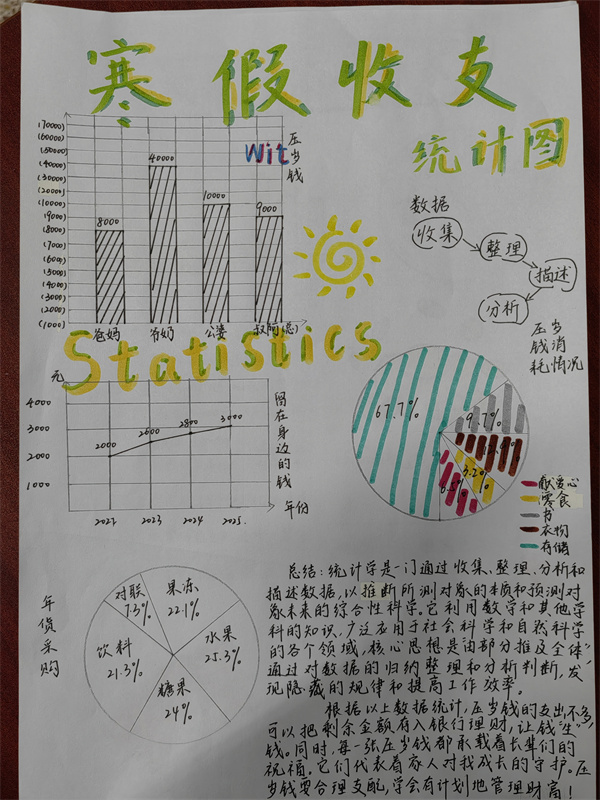 寒假收支
统计图
Wit
压岁钱
(70000)
(60000)
(50000)
(40000)
(30000)
(20000)
(10000)
(9000)
(8000)
(7000)
(6000)
(5000)
(4000)
(3000)
(2000)
(1000)
8000
40000
10000
9000
爸妈
爷奶
公婆
数据
收集
整理
描述
分析
Statistics
元
4000
3000
2000
1000
2000
2600
2800
3000
2023
2024
2025.
年份
留在身边的钱
压岁
钱消
耗情况
67.7%
9.7%
3.2%
献爱心
零食
书
衣物
存储
年货采购
对联
7.3%
果冻
22.1%
水果
25.3%
糖果
24%
饮料
21.3%
总结:统计学是一门通过收集、整理、分析和
描述数据,以推断所测对象的本质和预测对
象未来的综合性科学。它利用数学和其他学
科的知识,广泛应用于社会科学和自然科学
的各个领域,核心思想是由部分推及全体”
通过对数据的归纳整理和分析判断,发
现隐藏的规律和提高工作效率。
根据以上数据统计,压岁钱的支出不多,
可以把剩余金额存入银行理财,让钱“生”
钱。同时,每一张压岁钱都承载着长辈们的
祝福。它们代表着家人对我成长的守护。压
岁钱要合理支配,学会有计划地管理财富!